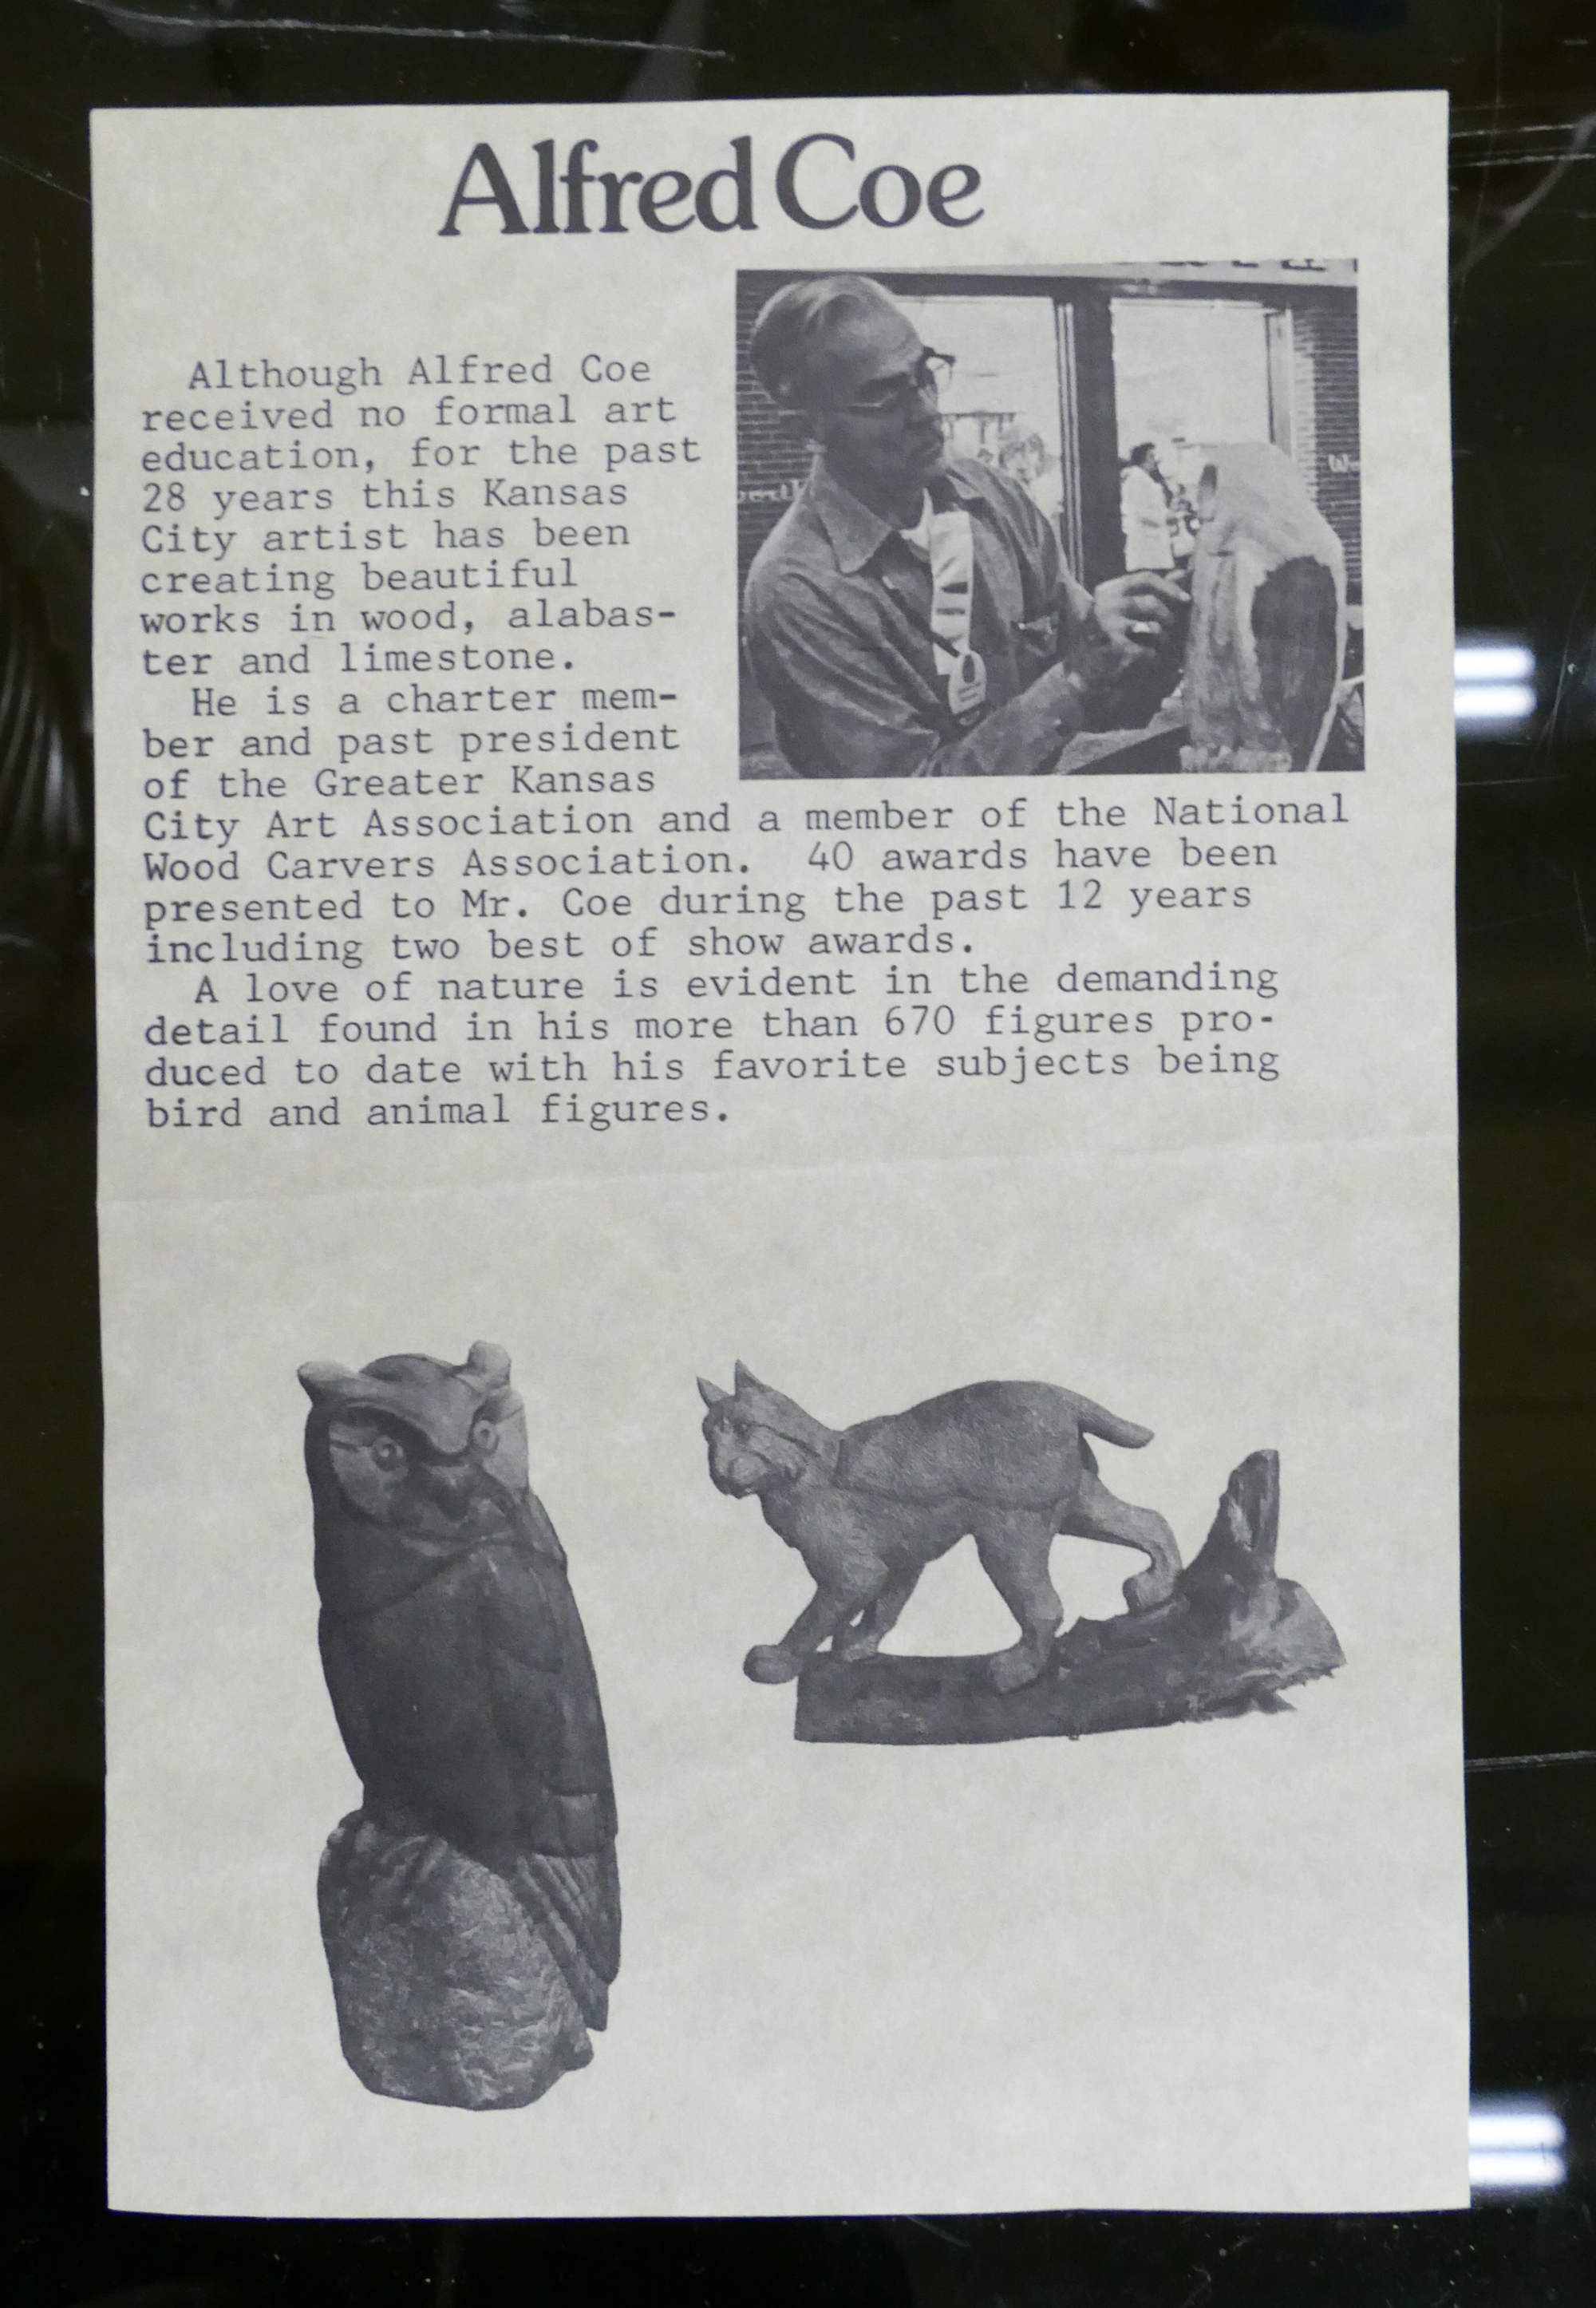 Alfred Coe
Although Alfred Coe
received no formal art
education, for the past
28 years this Kansas
City artist has been
creating beautiful
works in wood, alabas-
ter and limestone.
He is a charter mem-
ber and past president
of the Greater Kansas
City Art Association and a member of the National
Wood Carvers Association. 40 awards have been
presented to Mr. Coe during the past 12 years
including two best of show awards.
A love of nature is evident in the demanding
detail found in his more than 670 figures pro-
duced to date with his favorite subjects being
bird and animal figures.